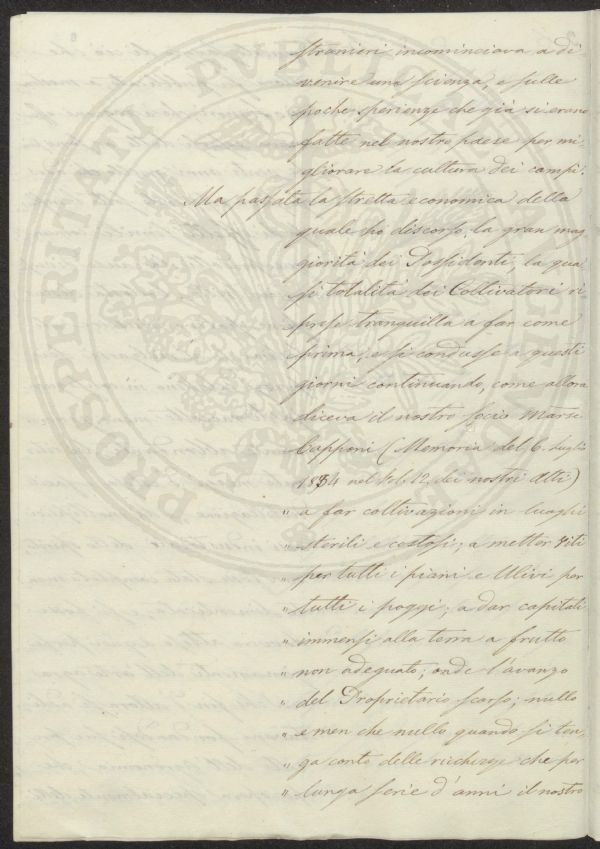 stranieri incominciava a di
venire una scienza, e sulle
poche sperienze che già si erano
fatte nel nostro paese per mi-
gliorare la cultura dei campi.
Ma passata la stretta economica della
quale ho discorso, la gran mag
giorità dei Possidenti, la qua
si totalità dei Coltivatori ri
prese tranquilla a far come
prima, e si condusse a questi
giorni continuando, come allora
diceva il nostro socio Marse
Capponi (Memoria del 6. Luglio
1834 nel Vol. 12. dei nostri Atti)
" a far coltivazioni in luoghi
" sterili e costosi; a metter Viti
" per tutti i piani e Ulivi per
" tutti i poggi; a dar capitali
" immensi alla terra a frutto
" non adeguato; onde l'avanzo
" del Proprietario scarso; nullo
" e men che nullo quando si ten
" ga conto delle ricchezze che per
" lunga serie d'anni il nostro
PROSPERITATI PVBLICAE